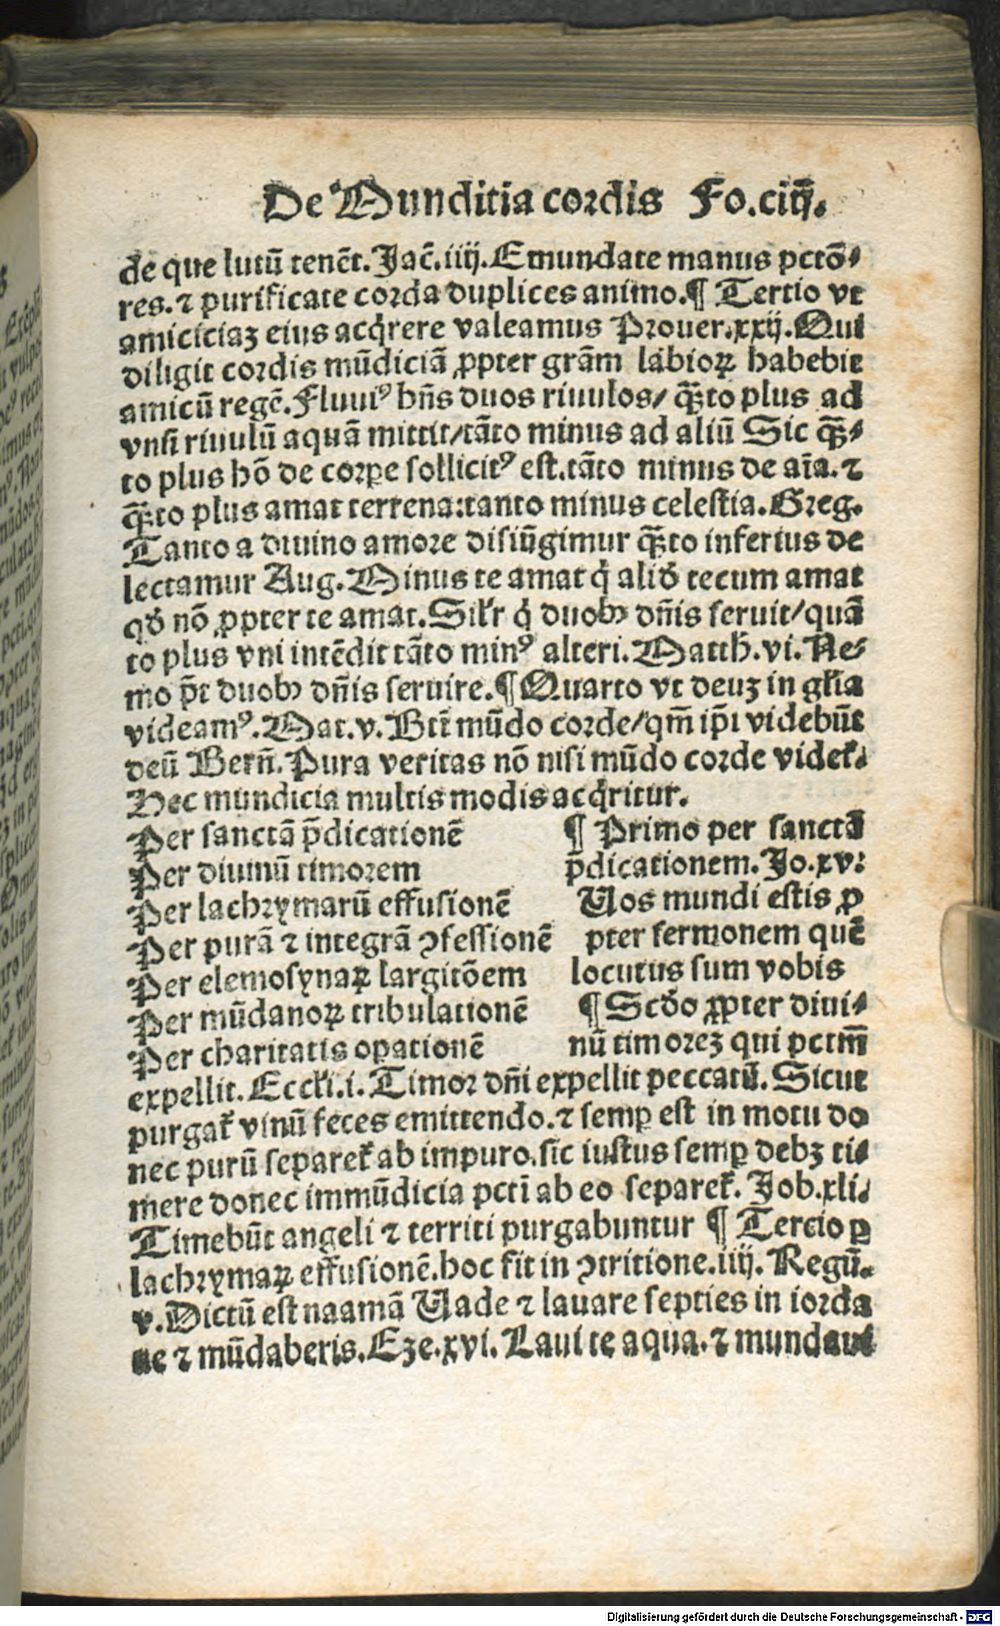 De Munditia cordis Fo.ciiij.
de que lutū tenēt. Jac̄.iiij. Emundate manus pctō⸗
res. ⁊ purificate corda duplices animo.¶ Tertio vt
amiciciaꝫ eius acq̇rere valeamus Prouer.xxij. Qui
diligit cordis mūdiciā ꝓpter grām labioꝝ habebit
amicū regē. Fluuiꝰ hn̄s duos riuulos/ qᷓ̄to plus ad
vnū riuulū aquā mittit/tāto minus ad aliū Sic qᷓ̄⸗
to plus hō de corꝑe sollicitꝰ est.tāto minus de aīa. ⁊
qᷓ̄to plus amat terrena:tanto minus celestia. Greg.
Tanto a diuino amore disiūgimur qᷓ̄to inferius de
lectamur Aug. Minus te amat q̇ aliđ tecum amat
qđ nō ꝓpter te amat. Silꝉr q̇ duobꝰ dn̄is seruit/quā
to plus vni intēdit tāto minꝰ alteri. Matth.vi. Ne⸗
mo p̄t duobꝰ dn̄is seruire.¶ Quarto vt deuꝫ in gꝉia
videamꝰ. Mat.v. Btī mūdo corde/qm̄ ip̄i videbūt
deū Bern̄. Pura veritas nō nisi mūdo corde videt̄.
Hec mundicia multis modis acq̇ritur.
Per sanctā p̄dicationē
Per diuinū timorem
Per lachrymarū effusionē
Per purā ⁊ integrā ꝯfessionē
Per elemosynaꝝ largitōem
Per mūdanoꝝ tribulationē
Per charitatis oꝑationē
¶ Primo per sanctā
p̄dicationem. Jo.xv.
Uos mundi estis ꝓ
pter sermonem quē
locutus sum vobis
¶ Scđo ꝓpter diui⸗
nū timoreꝫ qui pctm̄
expellit. Eccꝉi.i. Timor dn̄i expellit peccatū. Sicut
purgat̄ vinū feces emittendo. ⁊ semꝑ est in motu do
nec purū separet̄ ab impuro. sic iustus semꝑ debꝫ ti⸗
mere donec immūdicia pctī ab eo separet̄. Job.xli.
Timebūt angeli ⁊ territi purgabuntur ¶ Tercio ꝑ
lachrymaꝝ effusionē.hoc fit in ꝯtritione.iiij. Regū.
v. Dictū est naamā Uade ⁊ lauare septies in iorda
ne ⁊ mūdaberis. Eze.xvi. Laui te aqua. ⁊ mundaui
Digitalisierung gefördert durch die Deutsche Forschungsgemeinschaft - DFG